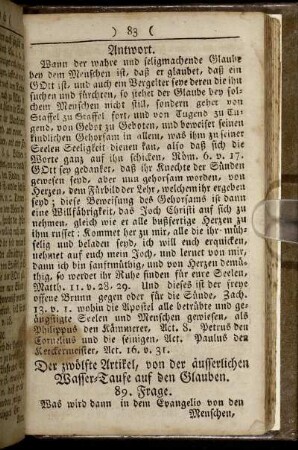 ) 83 (
Antwort.
Wann der wahre und seligmachende Glaube
bey dem Menschen ist, daß er glaubet, daß ein
GOtt ist, und auch ein Vergelter seye deren die ihn
suchen und fürchten, so stehet der Glaube bey sol-
chem Menschen nicht still, sondern gehet von
Staffel zu Staffel fort, und von Tugend zu Tu-
gend, von Gebot zu Geboten, und beweiset seinen
kindlichen Gehorsam in allem, was ihm zu seiner
Seelen Seeligkeit dienen kan, also daß sich die
Worte ganz auf ihn schicken, Röm. 6. v. 17.
GOtt sey gedanket, daß ihr Knechte der Sünden
gewesen seyd, aber nun gehorsam worden, von
Herzen, dem Fürbild der Lehr, welchem ihr ergeben
seyd; diese Beweisung des Gehorsams ist dann
eine Willfähigkeit, das Joch Christi auf sich zu
nehmen, gleich wie er alle bußfertige Herzen zu
ihm ruffet: Kommet her zu mir, alle die ihr müh-
selig und beladen seyd, ich will euch erquicken,
nehmet auf euch mein Joch, und lernet von mir,
dann ich bin sanftmüthig, und von Herzen demü-
thig, so werdet ihr Ruhe finden für eure Seelen,
Matth. 11. v. 28. 29. Und dieses ist der freye
offene Brunn gegen oder für die Sünde, Zach.
13. v. 1. wohin die Apostel alle betrübte und ge-
ängstigte Seelen und Menschen gewiesen, als
Philippus den Kämmerer, Act. 8. Petrus den
Cornelius und die seinigen, Act. Paulus den
Kerckermeister, Act. 16. v. 31.
Der zwölfte Artikel, von der äusserlichen
Wasser-Taufe auf den Glauben.
89. Frage.
Was wird dann in dem Evangelio von den
Menschen,